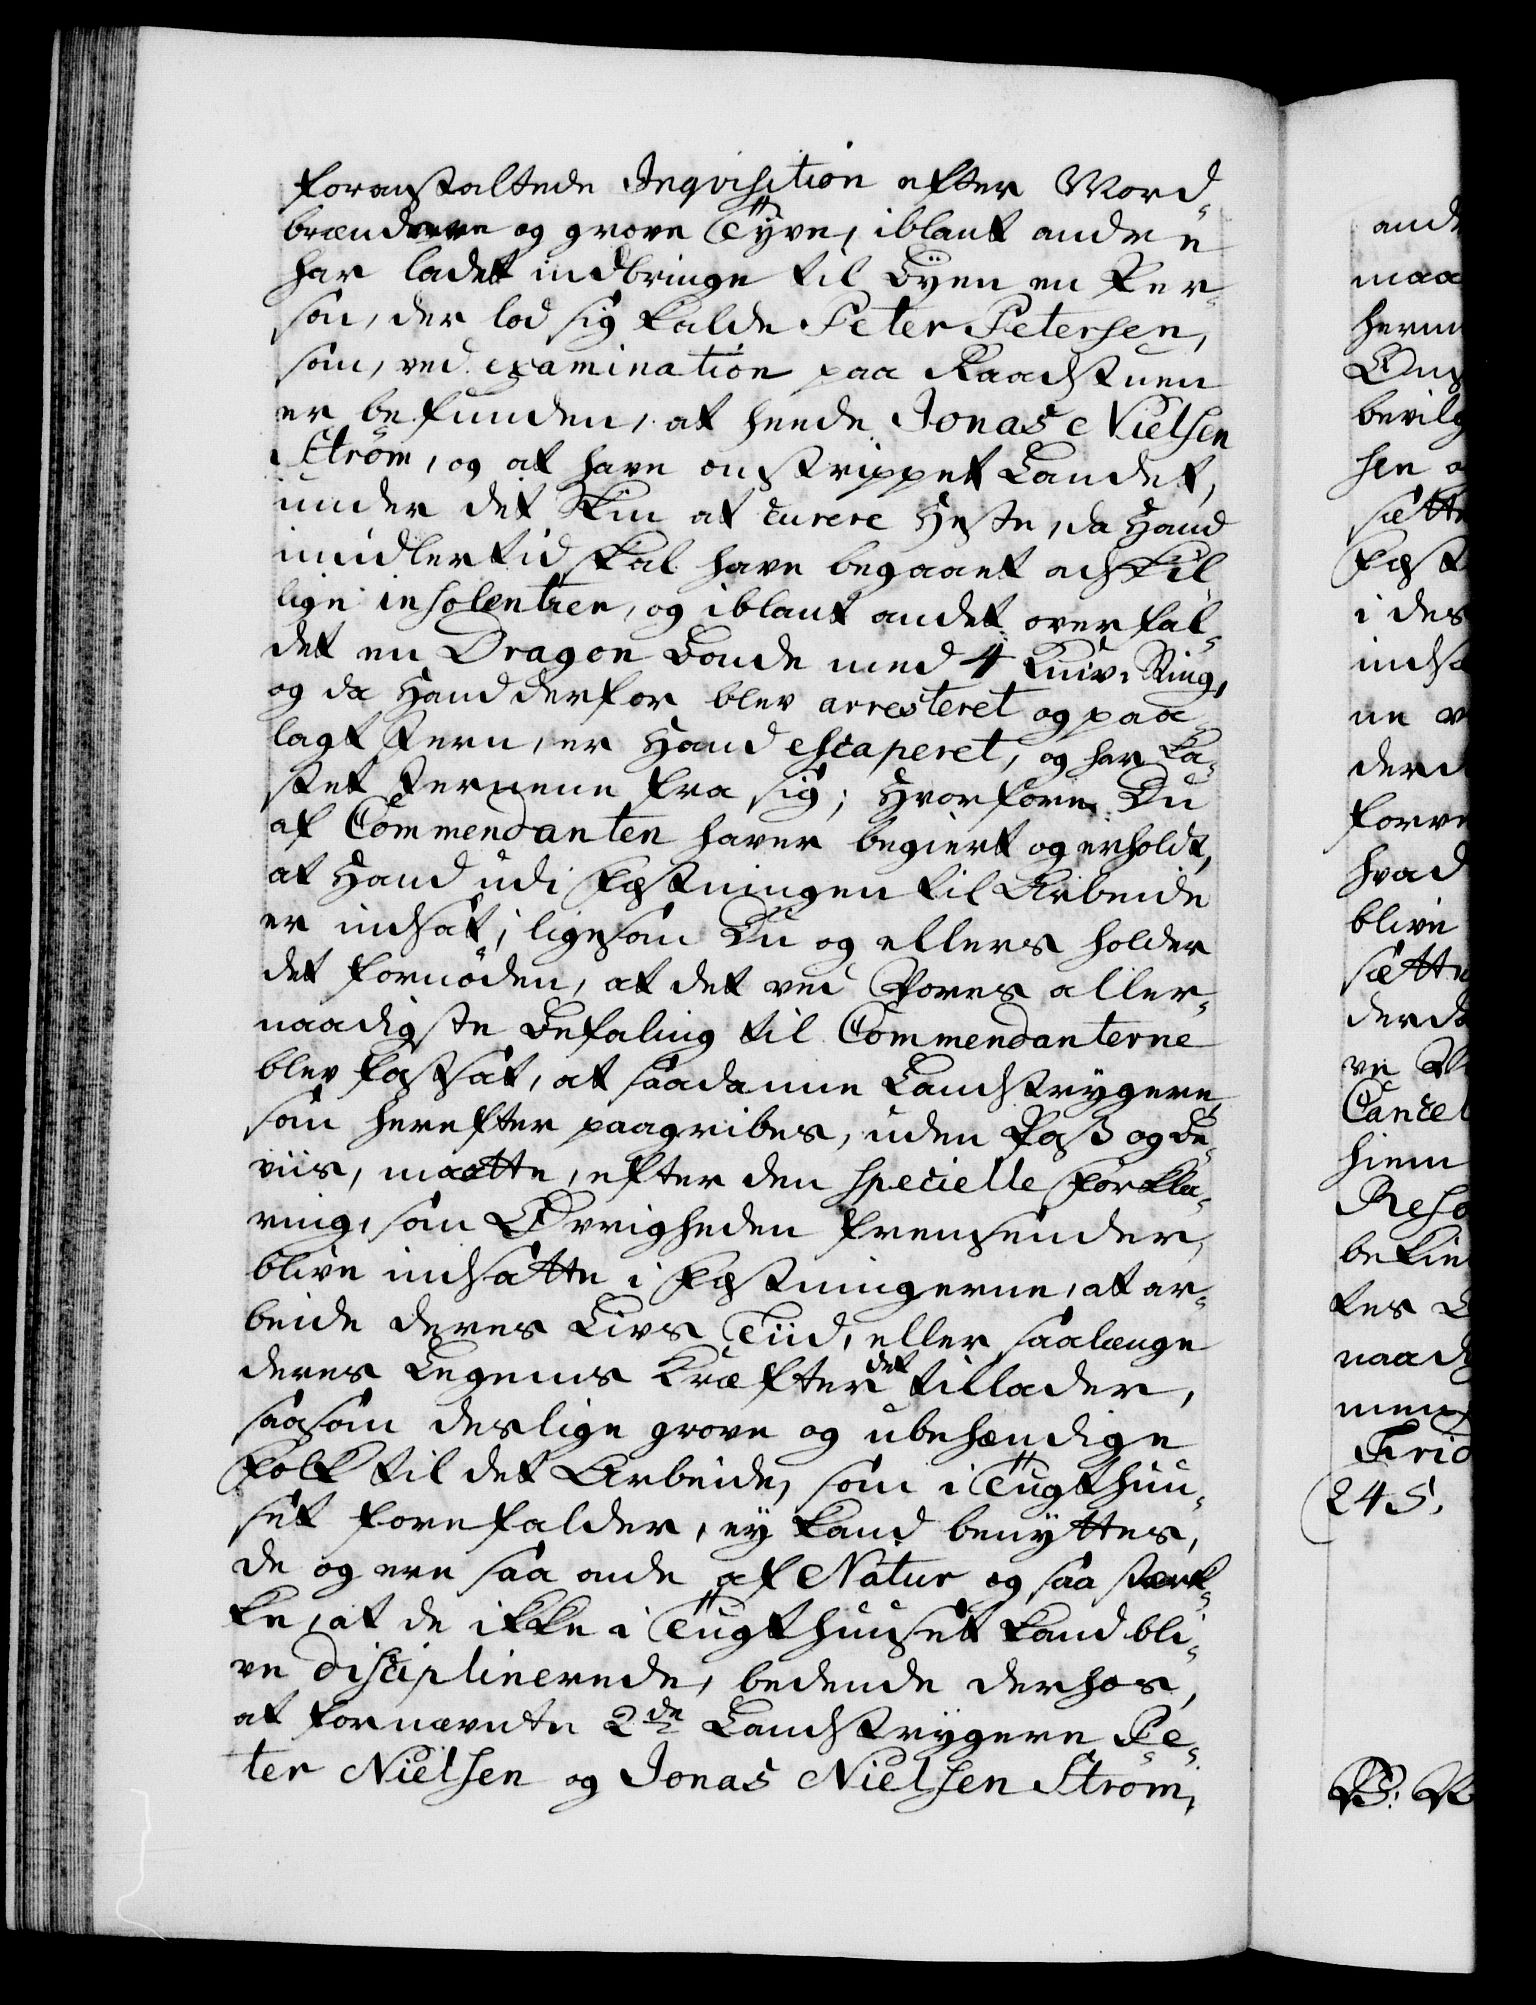 foranstaltede Inqvisition efter Mord-
brændere og grove Tyve, iblant andre
har ladet indbringe til Byen en Per-
son, der lod sig kalde Peter Petersen,
som, ved examination paa Raadstuen
er befunden, at heede Jonas Nielsen
Strøm, og at have omstrippet Landet,
under det Skin at curere Heste, da Hand
imidlertid skal have begaaet adskil-
lige insolentier, og iblant andet overfal-
det en Dragon Bonde med 4 Kniv. Ring,
og da Hand derfor blev arresteret og paa-
lagt Jern, er Hand escaperet, og har ka-
stet Jernene fra sig; Hvorfore Du
af Commendanten haver begiert og erholdt,
at Hand udi Fæstningen til Arbeide
er indsat; ligesom Du og ellers holder
det fornöden, at det ved Vores aller-
naadigste Befaling til Commendanterne
blev fastsat, at saadanne Landstrygere,
som herefter paagribes, uden Pass og Be-
viis, maatte, efter den specielle Forkla-
ring, som Øvrigheden fremsender,
blive indsatte i Fæstningerne, at ar-
beide deres Livs Tiid, eller saalænge
deres Legems Kræfter det tillader,
saasom deslige grove og ubehændige
Folk til det Arbeide, som i Tugthuu-
set forefalder, ey kand benyttes,
de og ere saa onde af Natur og saa stær-
ke, at de ikke i Tugthuuset kand bli-
ve disciplinerede, bedende derhos,
at fornævnte 2de Landstrygere Pe-
ter Nielsen og Jonas Nielsen Strøm,
and
maa
herm
bevilg
sen o
sætte
Fæst
i des
indsa
ne v
derd
forre
hvad
blive
sætte
derda
Cancel
hiem
Reso
bekie
naadi
Frid
245.